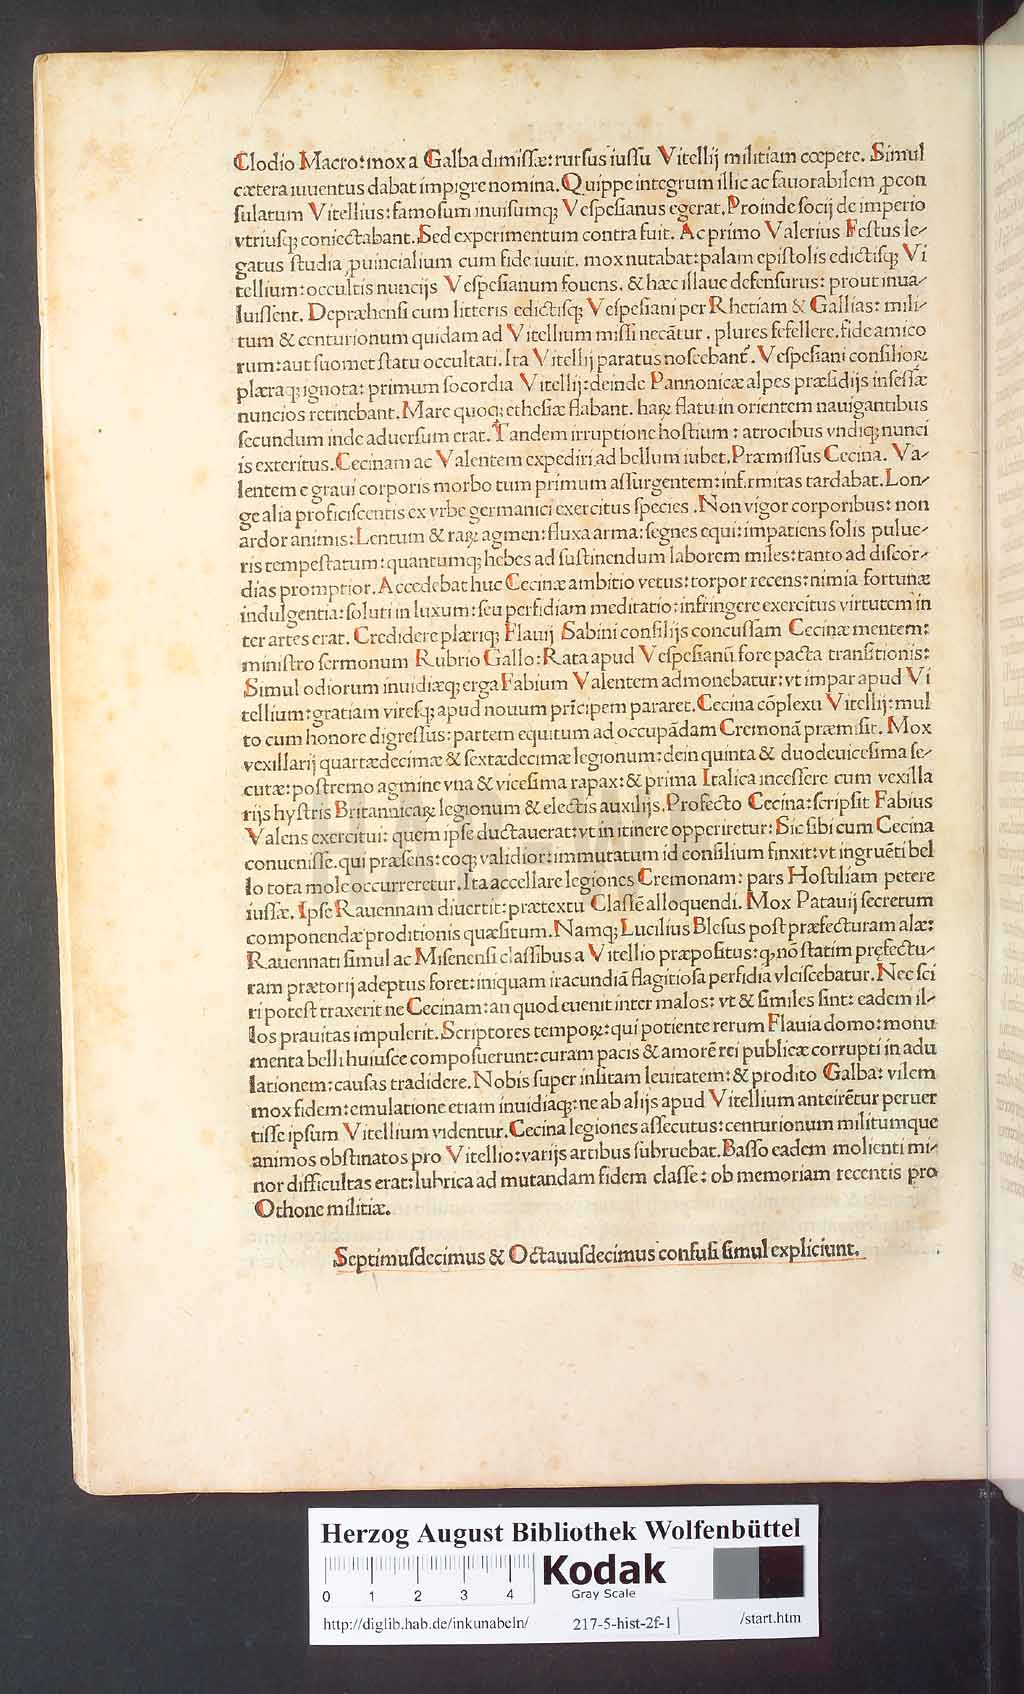 Clodio Macro: mox a Galba dimissæ: rursus iussu Vitellij militiam cœpere. Simul
cætera iuuentus dabat impigre nomina. Quippe integrum illic ac fauorabilem ꝓcon
sulatum Vitellius: famosum inuisumqꝫ Vespesianus egerat. Proinde socij de imperio
vtriusqꝫ coniectabant. Sed experimentum contra fuit. Ac primo Valerius Festus le-
gatus studia ꝓuincialium cum fide iuuit. mox nutabat: palam epistolis edictisqꝫ Vi
tellium: occultis nuncijs Vespesianum fouens. & hæc illaue defensurus: prout inua-
luissent. Depræhensi cum litteris edictisqꝫ Vespesiani per Rhetiam & Gallias: mili-
tum & centurionum quidam ad Vitellium missi necātur. plures fefellere. fide amico
rum: aut suomet statu occultati. Ita Vitellij paratus noscebant᷑. Vespesiani consilioꝝ
plæraqꝫ ignota: primum socordia Vitellij: deinde Pannonicæ alpes præsidijs infessæ
nuncios retinebant. Mare quoqꝫ ethesiæ flabant. haꝝ flatu in orientem nauigantibus
secundum inde aduersum erat. Tandem irruptione hostium: atrocibus vndiqꝫ nunci
is exteritus. Cecinam ac Valentem expediri ad bellum iubet. Præmissus Cecina. Va-
lentem e graui corporis morbo tum primum assurgentem: infirmitas tardabat. Lon-
ge alia proficiscentis ex vrbe germanici exercitus species. Non vigor corporibus: non
ardor animis: Lentum & raꝝ agmen: fluxa arma: segnes equi: impatiens solis pulue-
ris tempestatum: quantumqꝫ hebes ad sustinendum laborem miles: tanto ad discor-
dias promptior. Accedebat huc Cecinæ ambitio vetus: torpor recens: nimia fortunæ
indulgentia: soluti in luxum: seu perfidiam meditatio: infringere exercitus virtutem in
ter artes erat. Credidere plæriqꝫ Flauij Sabini consilijs concussam Cecinæ mentem:
ministro sermonum Rubrio Gallo: Rata apud Vespesianū fore pacta transitionis:
Simul odiorum inuidiæqꝫ erga Fabium Valentem admonebatur: vt impar apud Vi
tellium: gratiam viresqꝫ apud nouum prīcipem pararet. Cecina cōplexu Vitellij: mul
to cum honore digressus: partem equitum ad occupādam Cremonā præmisit. Mox
vexillarij quartædecimæ & sextædecimæ legionum: dein quinta & duodeuicesima se-
cutæ: postremo agmine vna & vicesima rapax: & prima Italica incessere cum vexilla
rijs hystris Britannicaꝝ legionum & electis auxilijs. Profecto Cecina: scripsit Fabius
Valens exercitui: quem ipse ductauerat: vt in itinere opperiretur: Sic sibi cum Cecina
conuenisse. qui præsens: eoqꝫ validior: immutatum id consilium finxit: vt ingruēti bel
lo tota mole occurreretur. Ita accellare legiones Cremonam: pars Hostiliam petere
iussæ. Ipse Rauennam diuertit: prætextu Classē alloquendi. Mox Patauij secretum
componendæ proditionis quæsitum. Namqꝫ Lucilius Blesus post præfecturam alæ:
Rauennati simul ac Misenensi classibus a Vitellio præpositus: qꝫ nō statim pręfectu-
ram prætorij adeptus foret: iniquam iracundiā flagitiosa perfidia vlciscebatur. Nec sci
ri potest traxerit ne Cecinam: an quod euenit inter malos: vt & similes sint: eadem il-
los prauitas impulerit. Scriptores tempoꝝ: qui potiente rerum Flauia domo: monu
menta belli huiusce composuerunt: curam pacis & amorē rei publicæ corrupti in adu
lationem: causas tradidere. Nobis super insitam leuitatem: & prodito Galba: vilem
mox fidem: emulatione etiam inuidiaqꝫ: ne ab alijs apud Vitellium anteirētur peruer
tisse ipsum Vitellium videntur. Cecina legiones assecutus: centurionum militumque
animos obstinatos pro Vitellio: varijs artibus subruebat. Basso eadem molienti mi-
nor difficultas erat: lubrica ad mutandam fidem classe: ob memoriam recentis pro
Othone militiæ.
Septimusdecimus & Octauusdecimus confusi simul expliciunt.
Herzog August Bibliothek Wolfenbüttel
Kodak
Gray Scale
0 1 2 3 4
http://diglib.hab.de/inkunabeln/ 217-5-hist-2f-1 /start.htm